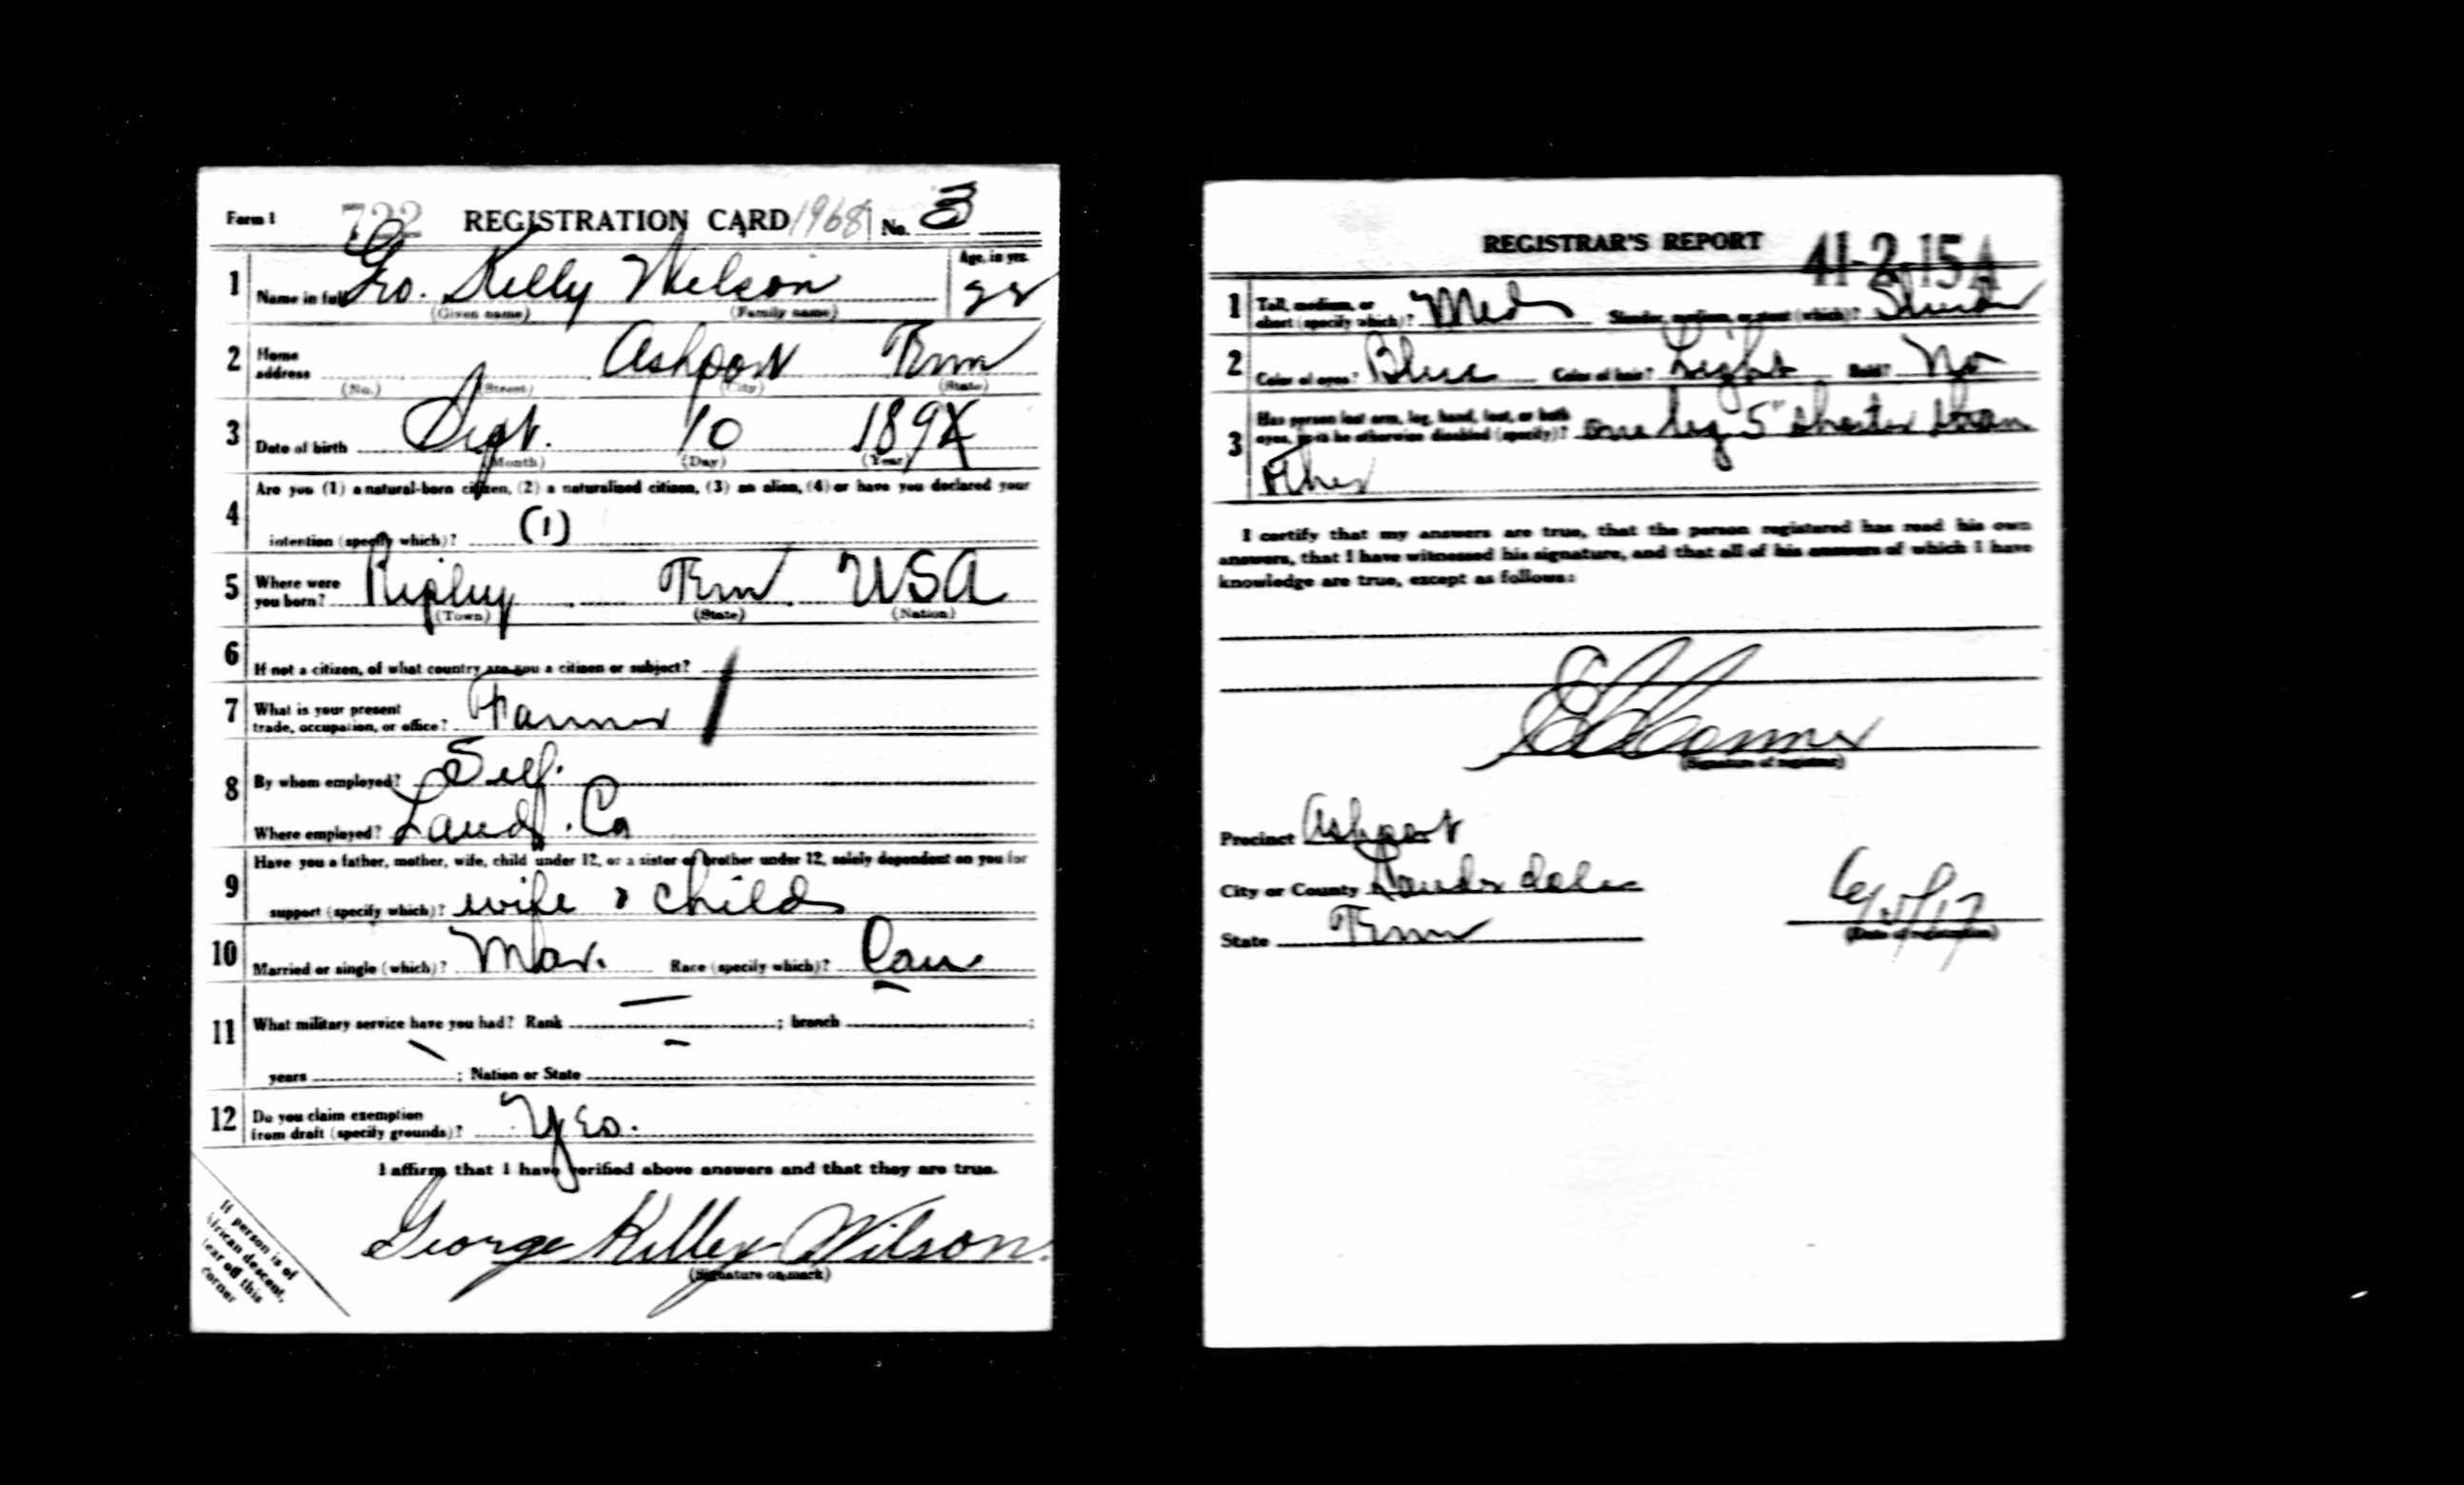 Form 1 722 REGISTRATION CARD 1968 No. 3
1 Name in full Geo. Kelly Wilson Age, in yrs.
(Given name) (Family name)
2 Home address Ashport Tenn
(No.) (Street) (City) (State)
3 Date of birth Sept. 10 189
(Month) (Day) (Year)
4 Are you (1) a natural-born citizen, (2) a naturalized citizen, (3) an alien, (4) or have you declared your
intention (specify which)? (1)
5 Where were you born? Ripley Tenn USA
(Town) (State) (Nation)
6 If not a citizen, of what country are you a citizen or subject?
7 What is your present
trade, occupation, or office? Farmer
8 By whom employed? Self.
Where employed? Laud. Co
9 Have you a father, mother, wife, child under 12, or a sister or brother under 12, solely dependent on you for
support (specify which)? wife & child
10 Married or single (which)? Mar. Race (specify which)? Cau.
11 What military service have you had? Rank — ; branch ;
years — ; Nation or State —
12 Do you claim exemption
from draft (specify grounds)? Yes.
I affirm that I have verified above answers and that they are true.
George Kelley Wilson.
(Signature or mark)
If person is of
African descent,
tear off this
corner
REGISTRAR'S REPORT 41-2-15 A
1 Tall, medium, or
short (specify which)? Med Slender, medium, or stout (which)? Slender
2 Color of eyes? Blue Color of hair? Light Bald? No
3 Has person lost arm, leg, hand, foot, or both
eyes, or is he otherwise disabled (specify)? one leg 5" shorter than
other
I certify that my answers are true, that the person registered has read his own
answers, that I have witnessed his signature, and that all of his answers of which I have
knowledge are true, except as follows:
Conner
(Signature of registrar)
Precinct Ashport
City or County Lauderdale
State Tenn 6/5/17
(Date of registration)